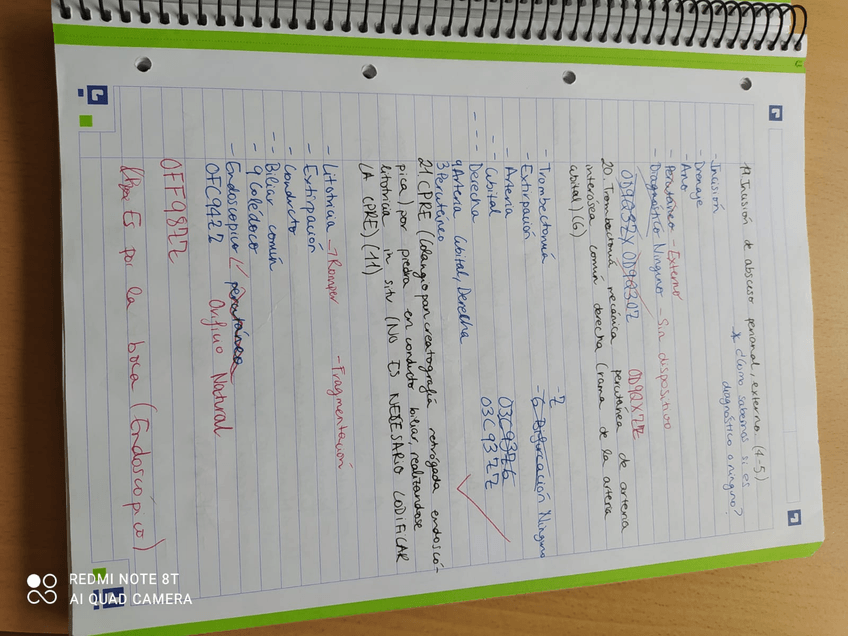 19. Incisión de absceso perianal, externo. (1-5)
* ¿Cómo sabemos si es
diagnóstico o ninguno?
- Incisión
- Drenaje
- Ano
- Percutáneo - Externo
- Diagnóstico Ninguno - Sin dispositivo
0D9Q3ZX 0D9Q30Z 0D9QXZZ
20. Trombectomía mecánica percutánea de arteria
interosea común derecha (rama de la arteria
cubital) (6)
- Trombectomía - Z
- Extirpación - 6 Bifurcación Ninguno
- Arteria 03C93Z6
- Cubital 03C93ZZ
- Derecha
- 9 Arteria Cubital, Derecha
- 3 Percutáneo
21 CPRE (Colangiopancreatografía retrógada endoscó-
pica) por piedra en conducto biliar, realizandose
litotricia in situ (NO ES NECESARIO CODIFICAR
LA CPRE) (11)
- Litotricia → Romper - Fragmentación
- Extirpación
- Conducto
- Biliar común
- 9 Colédoco
- Endoscopico percutánea Orifico Natural
0FC94ZZ
0FF98ZZ
Es por la boca (Endoscópico)
REDMI NOTE 8T
AI QUAD CAMERA